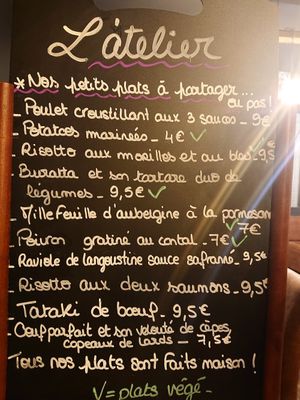 L'atelier
* Nos petits plats à partager...
ou pas!
- Poulet croustillant aux 3 sauces - 9€
- Potatoes marinées - 4€ ✓
- Risotto aux morilles et au - 9,5
- Buratta et son tartare duo de
légumes - 9,5€ ✓
- Mille feuille d'aubergine à la parmesan
✓ 7€
- Poivron gratiné au cantal - 7€ ✓
- Raviole de langoustine sauce safranée - 9,5€
- Risotto aux deux saumons - 9,5€
- Tataki de bœuf - 9,5€
- Oeuf parfait et son velouté de cèpes,
copeaux de lards - 7,5€
Tous nos plats sont faits maison !
V = plats végé -